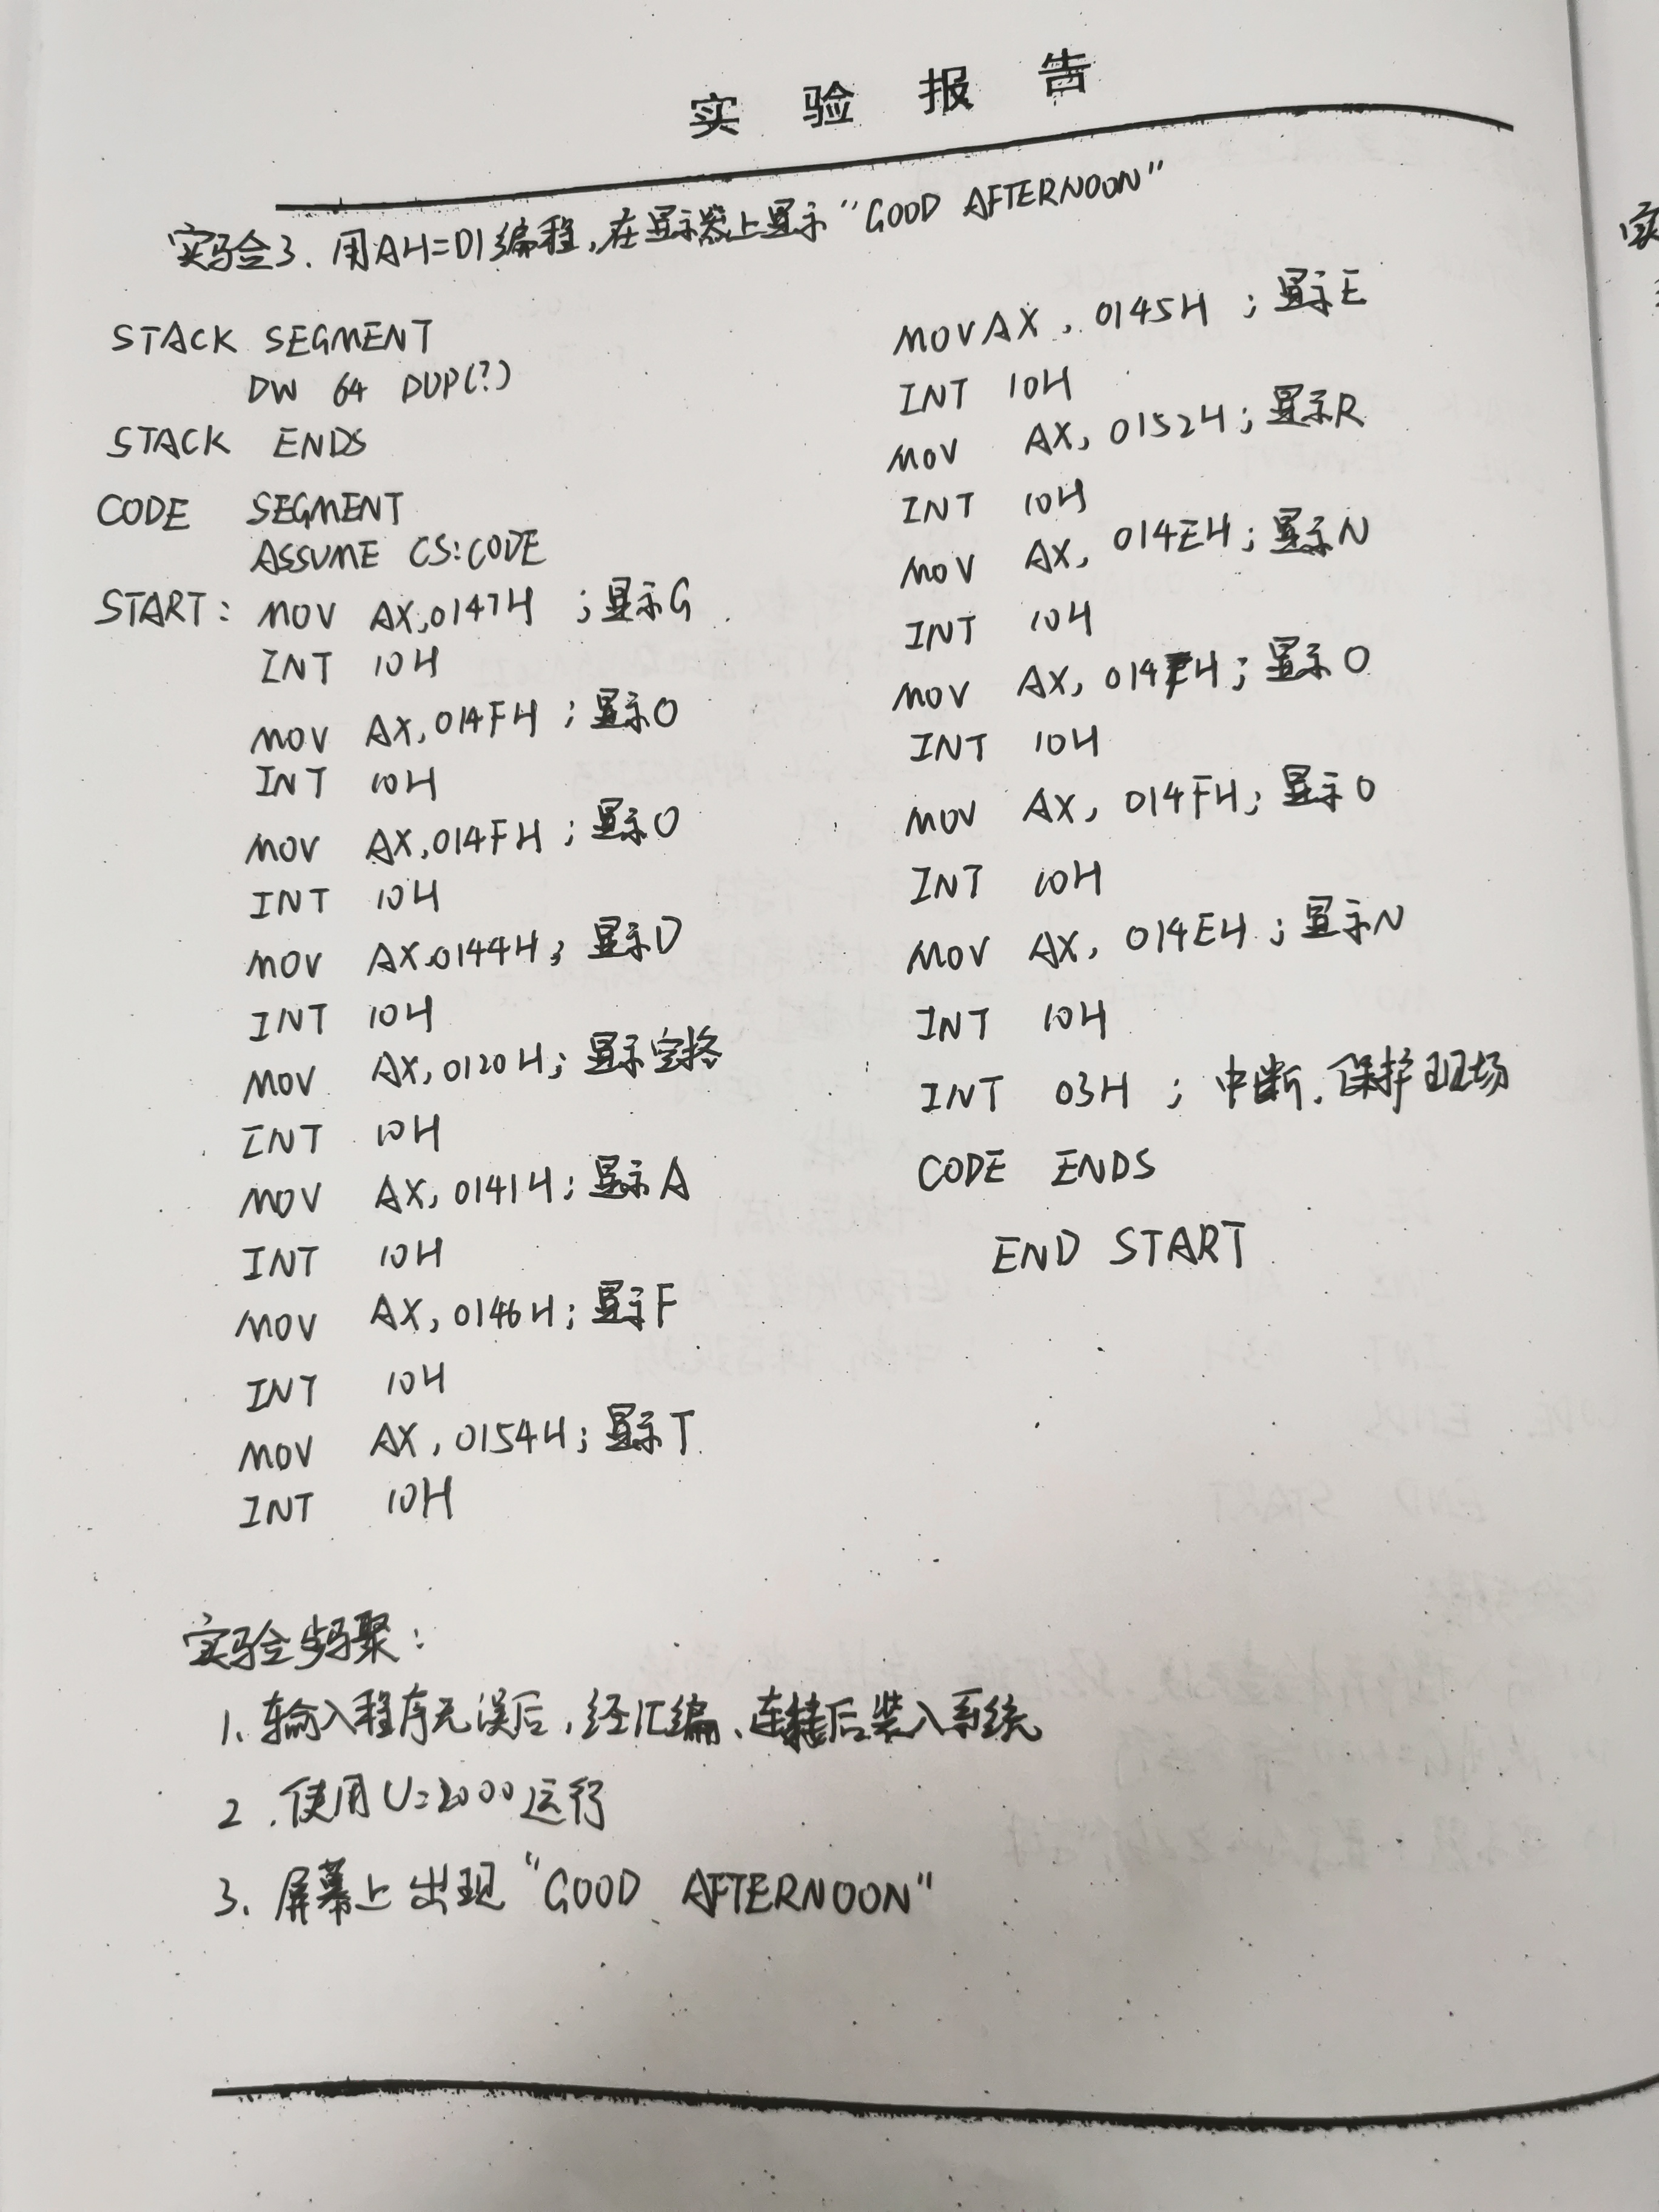 实验报告
实验3. 用AH=01编程,在显示器上显示“GOOD AFTERNOON”
STACK SEGMENT
DW 64 DUP(?)
STACK ENDS
CODE SEGMENT
ASSUME CS:CODE
START: MOV AX,0147H ;显示G
INT 10H
MOV AX,014FH ;显示O
INT 10H
MOV AX,014FH ;显示O
INT 10H
MOV AX,0144H;显示D
INT 10H
MOV AX,0120H;显示空格
INT 10H
MOV AX,0141H;显示A
INT 10H
MOV AX,0146H;显示F
INT 10H
MOV AX,0154H;显示T
INT 10H
MOV AX,0145H ;显示E
INT 10H
MOV AX,0152H;显示R
INT 10H
MOV AX,014EH;显示N
INT 10H
MOV AX,014FH;显示O
INT 10H
MOV AX,014FH;显示O
INT 10H
MOV AX,014EH;显示N
INT 10H
INT 03H ;中断.保护现场
CODE ENDS
END START
实验步骤:
1.输入程序无误后,经汇编、连接后装入系统
2.使用U=2000运行
3.屏幕上出现“GOOD AFTERNOON”